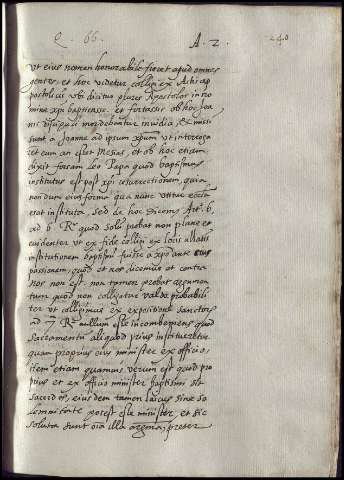 q. 66. A. 2. 240
ut eius nomen honorabile fieret apud omnes
gentes, et hoc videtur colligi ex Actis ap
postolicis ubi dicitur plures Apostolos in no
mine xpi baptizasse. et fortassis ob hoc Joan
nis discipuli mordebantur invidia, et missi
sunt a Joanne ad ipsum xpum ut interroga
rent eum an esset Mesias, et ob hoc etiam
dixit forsam Leo Papa quod baptismus
institutus est post xpi resurrectionem, quia
nondum eius forma qua nunc utitur eccla
erat instituta, sed de hoc dicemus Art. 6.
ad 6 Rr quod solum probat non plane et
evidenter ut ex fide colligi ex locis allatis
institutionem baptismi fuisse a xpo ante eius
passionem, quod et nos dicimus et contra
nos non est. non tamen probat argumen
tum quod non colligatur valde probabili
ter ut colligimus ex expositione sanctorum
ad 7 Rr nullum esse incombeniens quod
sacramentum aliquod prius instituatur
quam proprius eius minister ex officio,
item etiam quamvis verum est quod pro
prius et ex officio minister baptismi sit
sacerdos, eiusdem tamen laicus sine so
lemnitate potest esse minister, et sic
soluta sunt oia illa argta, preter